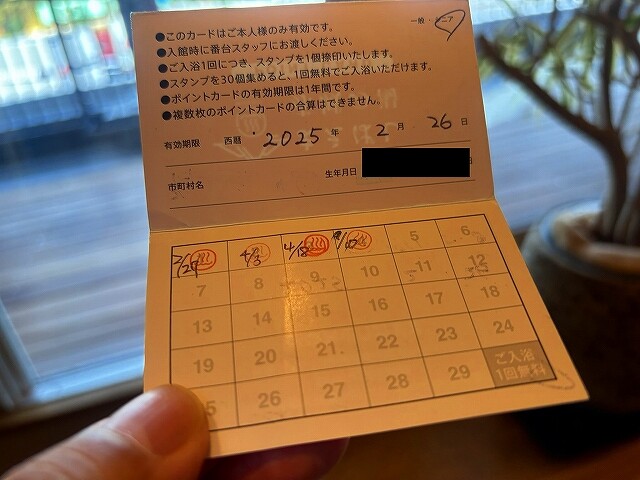 一般・シニア
●このカードはご本人様のみ有効です。
●入館時に番台スタッフにお渡しください。
●ご入浴1回につき、スタンプを1個捺印いたします。
●スタンプを30個集めると、1回無料でご入浴いただけます。
●ポイントカードの有効期限は1年間です。
●複数枚のポイントカードの合算はできません。
有効期限 西暦 2025 年 2 月 26 日
市町村名 生年月日
4/3 4/18 5 6
7 8 9 10 11 12
13 14 15 16 17 18
19 20 21 22 23 24
26 27 28 29 ご入浴
1回無料